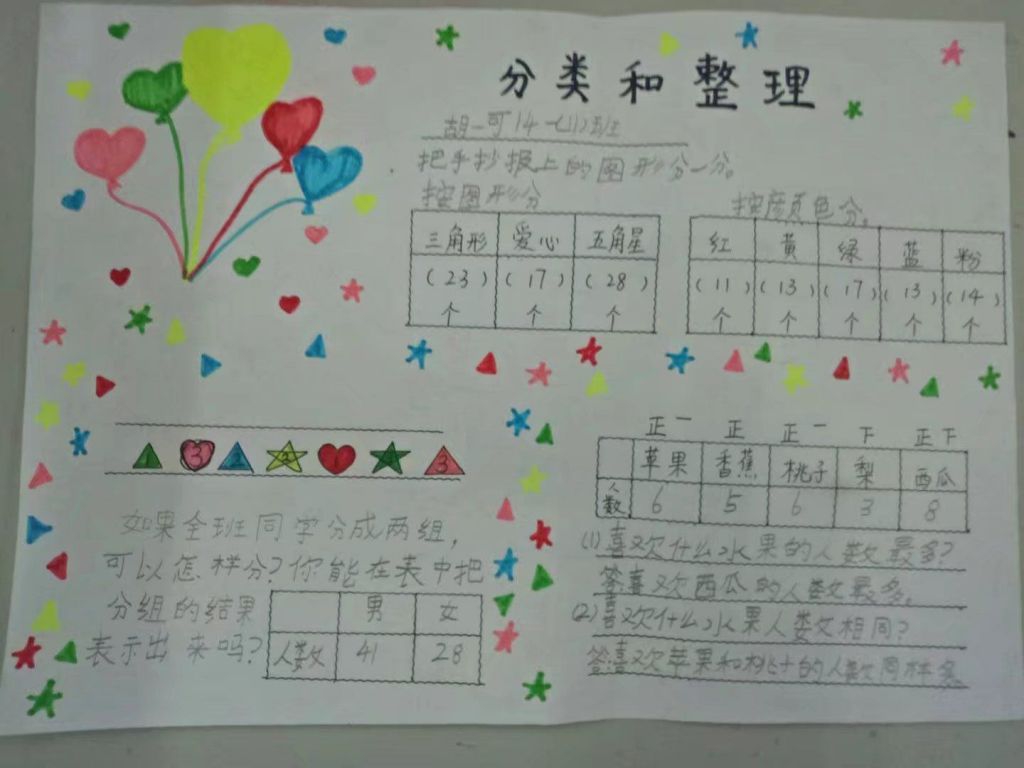 分类和整理
胡一可 14-(11)班
把手抄报上的图形分一分。
按图形分
三角形 爱心 五角星
(23) (17) (28)
个 个 个
按颜色分。
红 黄 绿 蓝 粉
(11) (13) (17) (13) (14)
个 个 个 个 个
3 2 2 3
如果全班同学分成两组，
可以怎样分?你能在表中把
分组的结果
表示出来吗?
男 女
人数 41 28
正一 正 正一 下 正下
苹果 香蕉 桃子 梨 西瓜
人数 6 5 6 3 8
(1)喜欢什么水果的人数最多?
答喜欢西瓜的人数最多。
(2)喜欢什么水果人数相同?
答:喜欢苹果和桃子的人数同样多